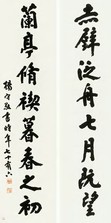 赤壁泛舟七月既望
蘭亭脩禊暮春之初
楊守敬書時年七十有六